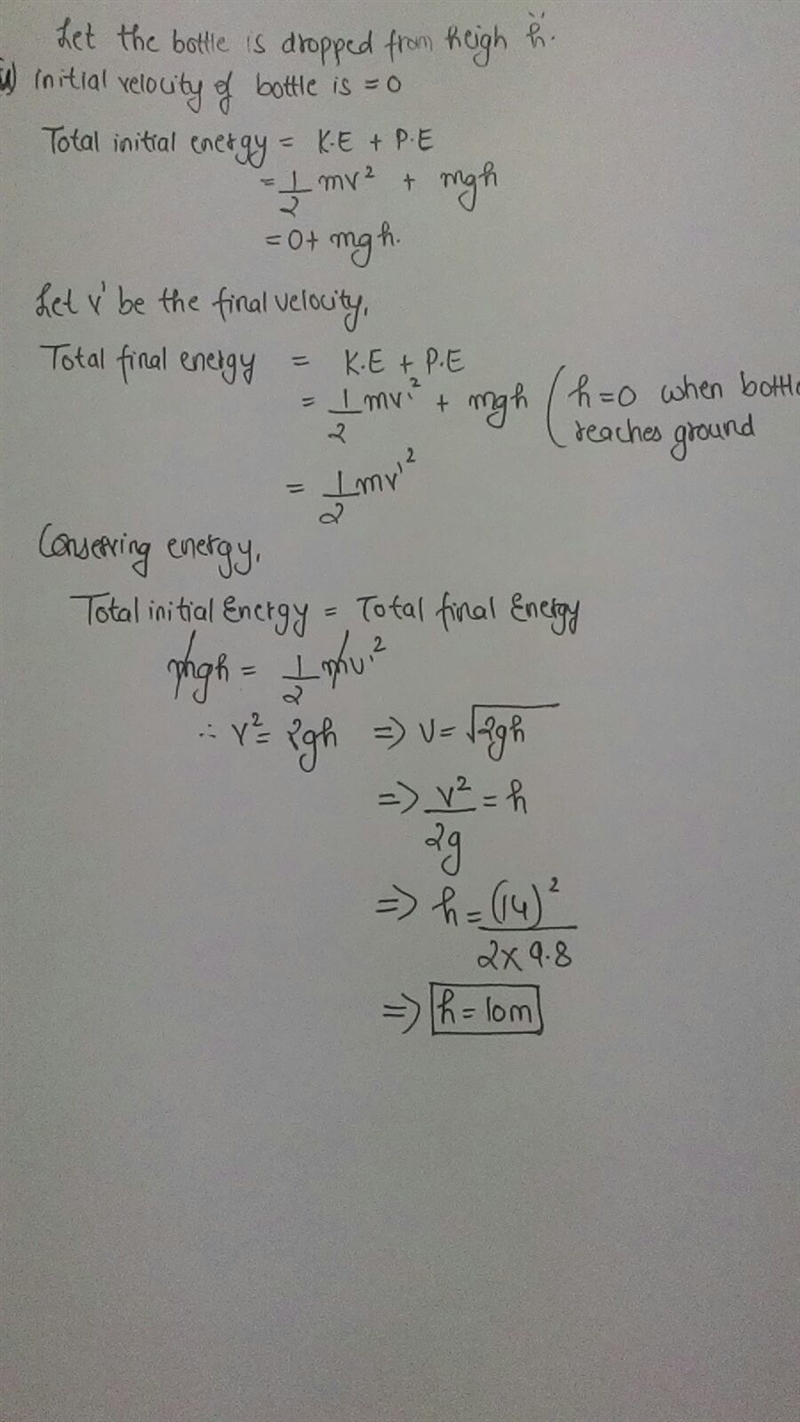 Let the bottle is dropped from heigh "h".
ii) Initial velocity of bottle is = 0
Total initial energy = K.E + P.E
= 1/2 mv² + mgh
= 0 + mgh.
Let v' be the final velocity,
Total final energy = K.E + P.E
= 1/2 mv'² + mgh (h=0 when bottle
reaches ground
= 1/2 mv'²
Conserving energy,
Total initial Energy = Total final Energy
mgh = 1/2 mv'²
∴ v² = 2gh => v = √2gh
=> v²/2g = h
=> h = (14)²/2×9.8
=> h = 10m